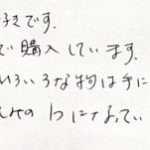 好きです。
で購入しています。
いろいろな物は手に
しみの1つになってい